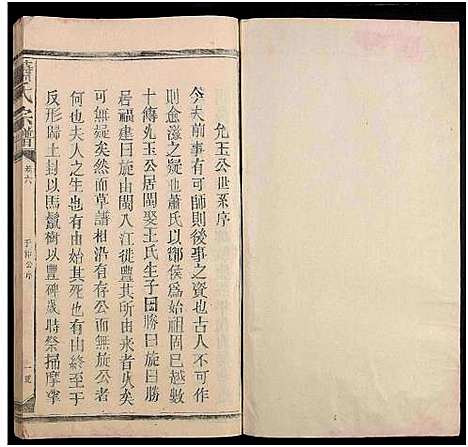 允玉公世系序
今夫前事有可師則後事之資也古人不可作
則僉滋之疑也蕭氏以酇侯爲始祖固已越數
十傳允玉公居閩娶王氏生子曰勝曰旋曰勝
居福建曰旋由閩入江徙豐其由來久矣
可無疑矣然而草譜相沿有存公而無旋公者
何也夫人之生也有由始其死也有由終至于
反形歸土封以馬鬣樹以豐碑歲時祭掃摩挲
蕭氏宗譜
卷六
公序